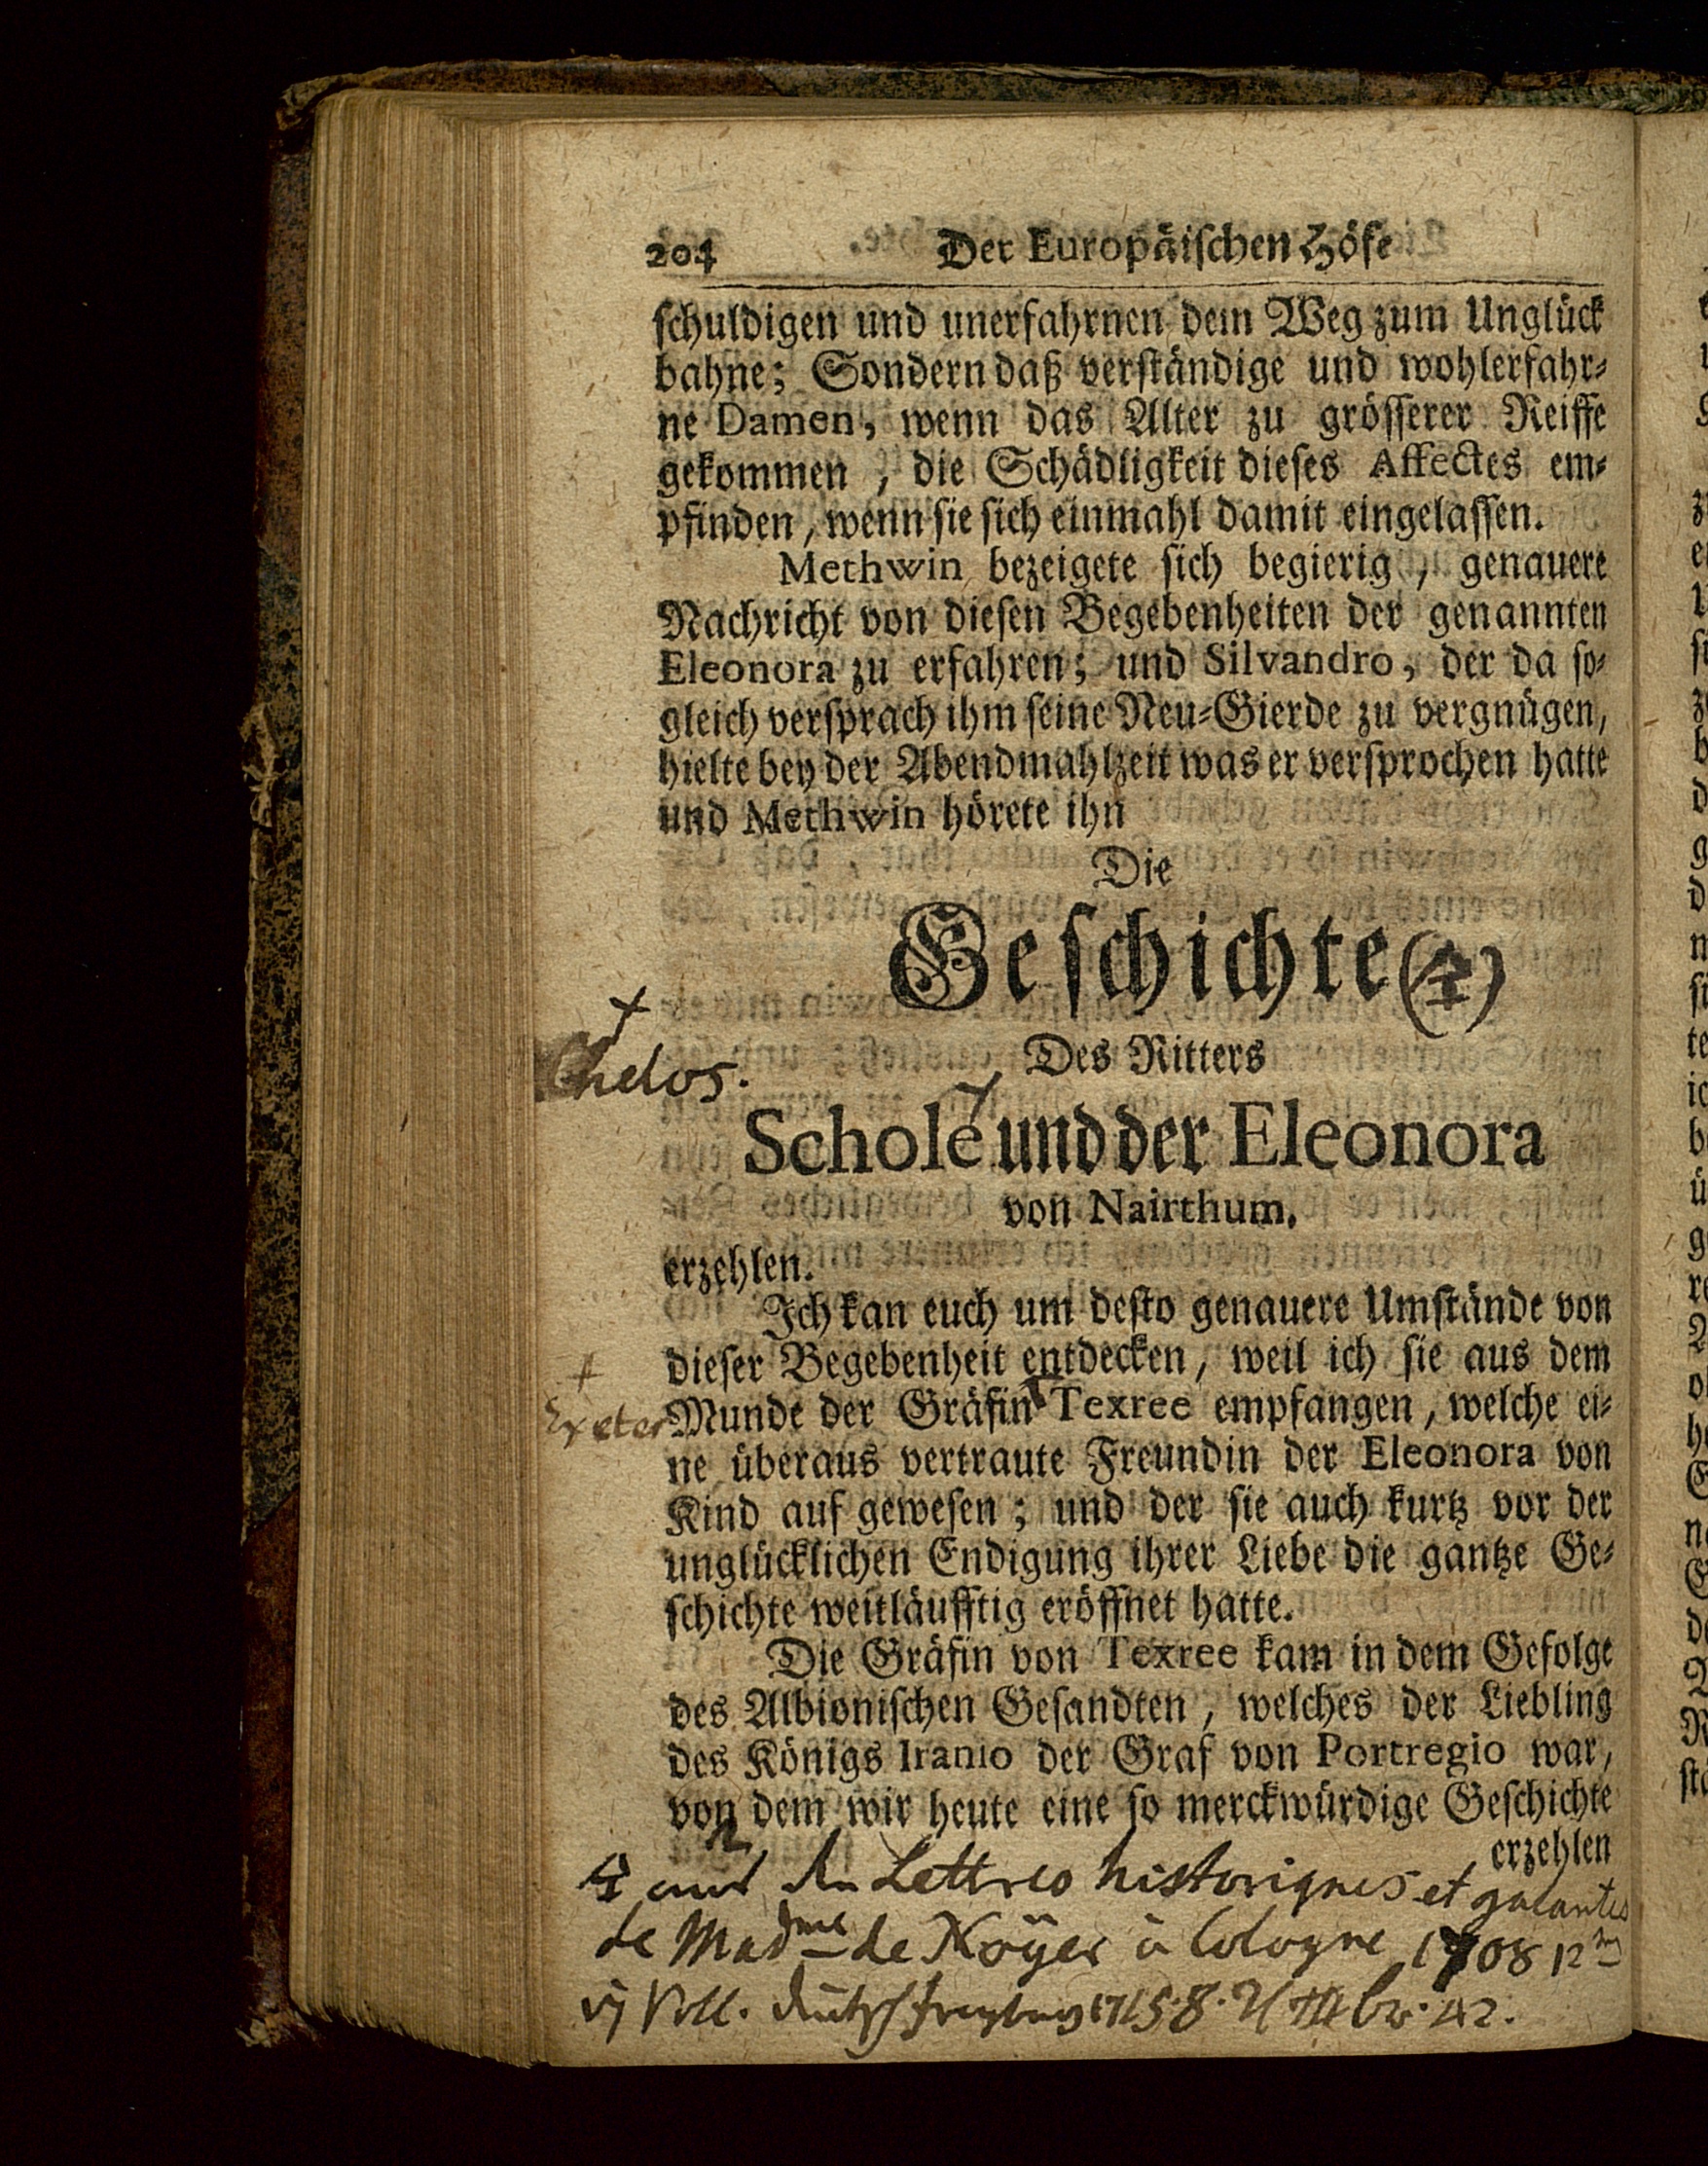 204 Der Europäischen Höfe
schuldigen und unerfahrnen dem Weg zum Unglück
bahne; Sondern daß verständige und wohlerfahr-
ne Damen, wenn das Alter zu grösserer Reiffe
gekommen, die Schädligkeit dieses Affectes em-
pfinden, wenn sie sich einmahl damit eingelassen.
Methwin bezeigete sich begierig, genauere
Nachricht von diesen Begebenheiten der genannten
Eleonora zu erfahren; und Silvandro, der da so-
gleich versprach ihm seine Neu-Gierde zu vergnügen,
hielte bey der Abendmahlzeit was er versprochen hatte
und Methwin hörete ihn
Die
Geschichte
Des Ritters
Chelos.
Schole und der Eleonora
von Nairthum.
erzehlen.
Ich kan euch um desto genauere Umstände von
dieser Begebenheit entdecken, weil ich sie aus dem
Exeter
Munde der Gräfin Texree empfangen, welche ei-
ne überaus vertraute Freundin der Eleonora von
Kind auf gewesen; und der sie auch kurtz vor der
unglücklichen Endigung ihrer Liebe die gantze Ge-
schichte weitläufftig eröffnet hatte.
Die Gräfin von Texree kam in dem Gefolge
des Albionischen Gesandten, welches der Liebling
des Königs Iranio der Graf von Portregio war,
von dem wir heute eine so merckwürdige Geschichte
erzehlen
Lettres historiques et galantes
de Madme de Noÿer à Cologne 1708 12
Voll.